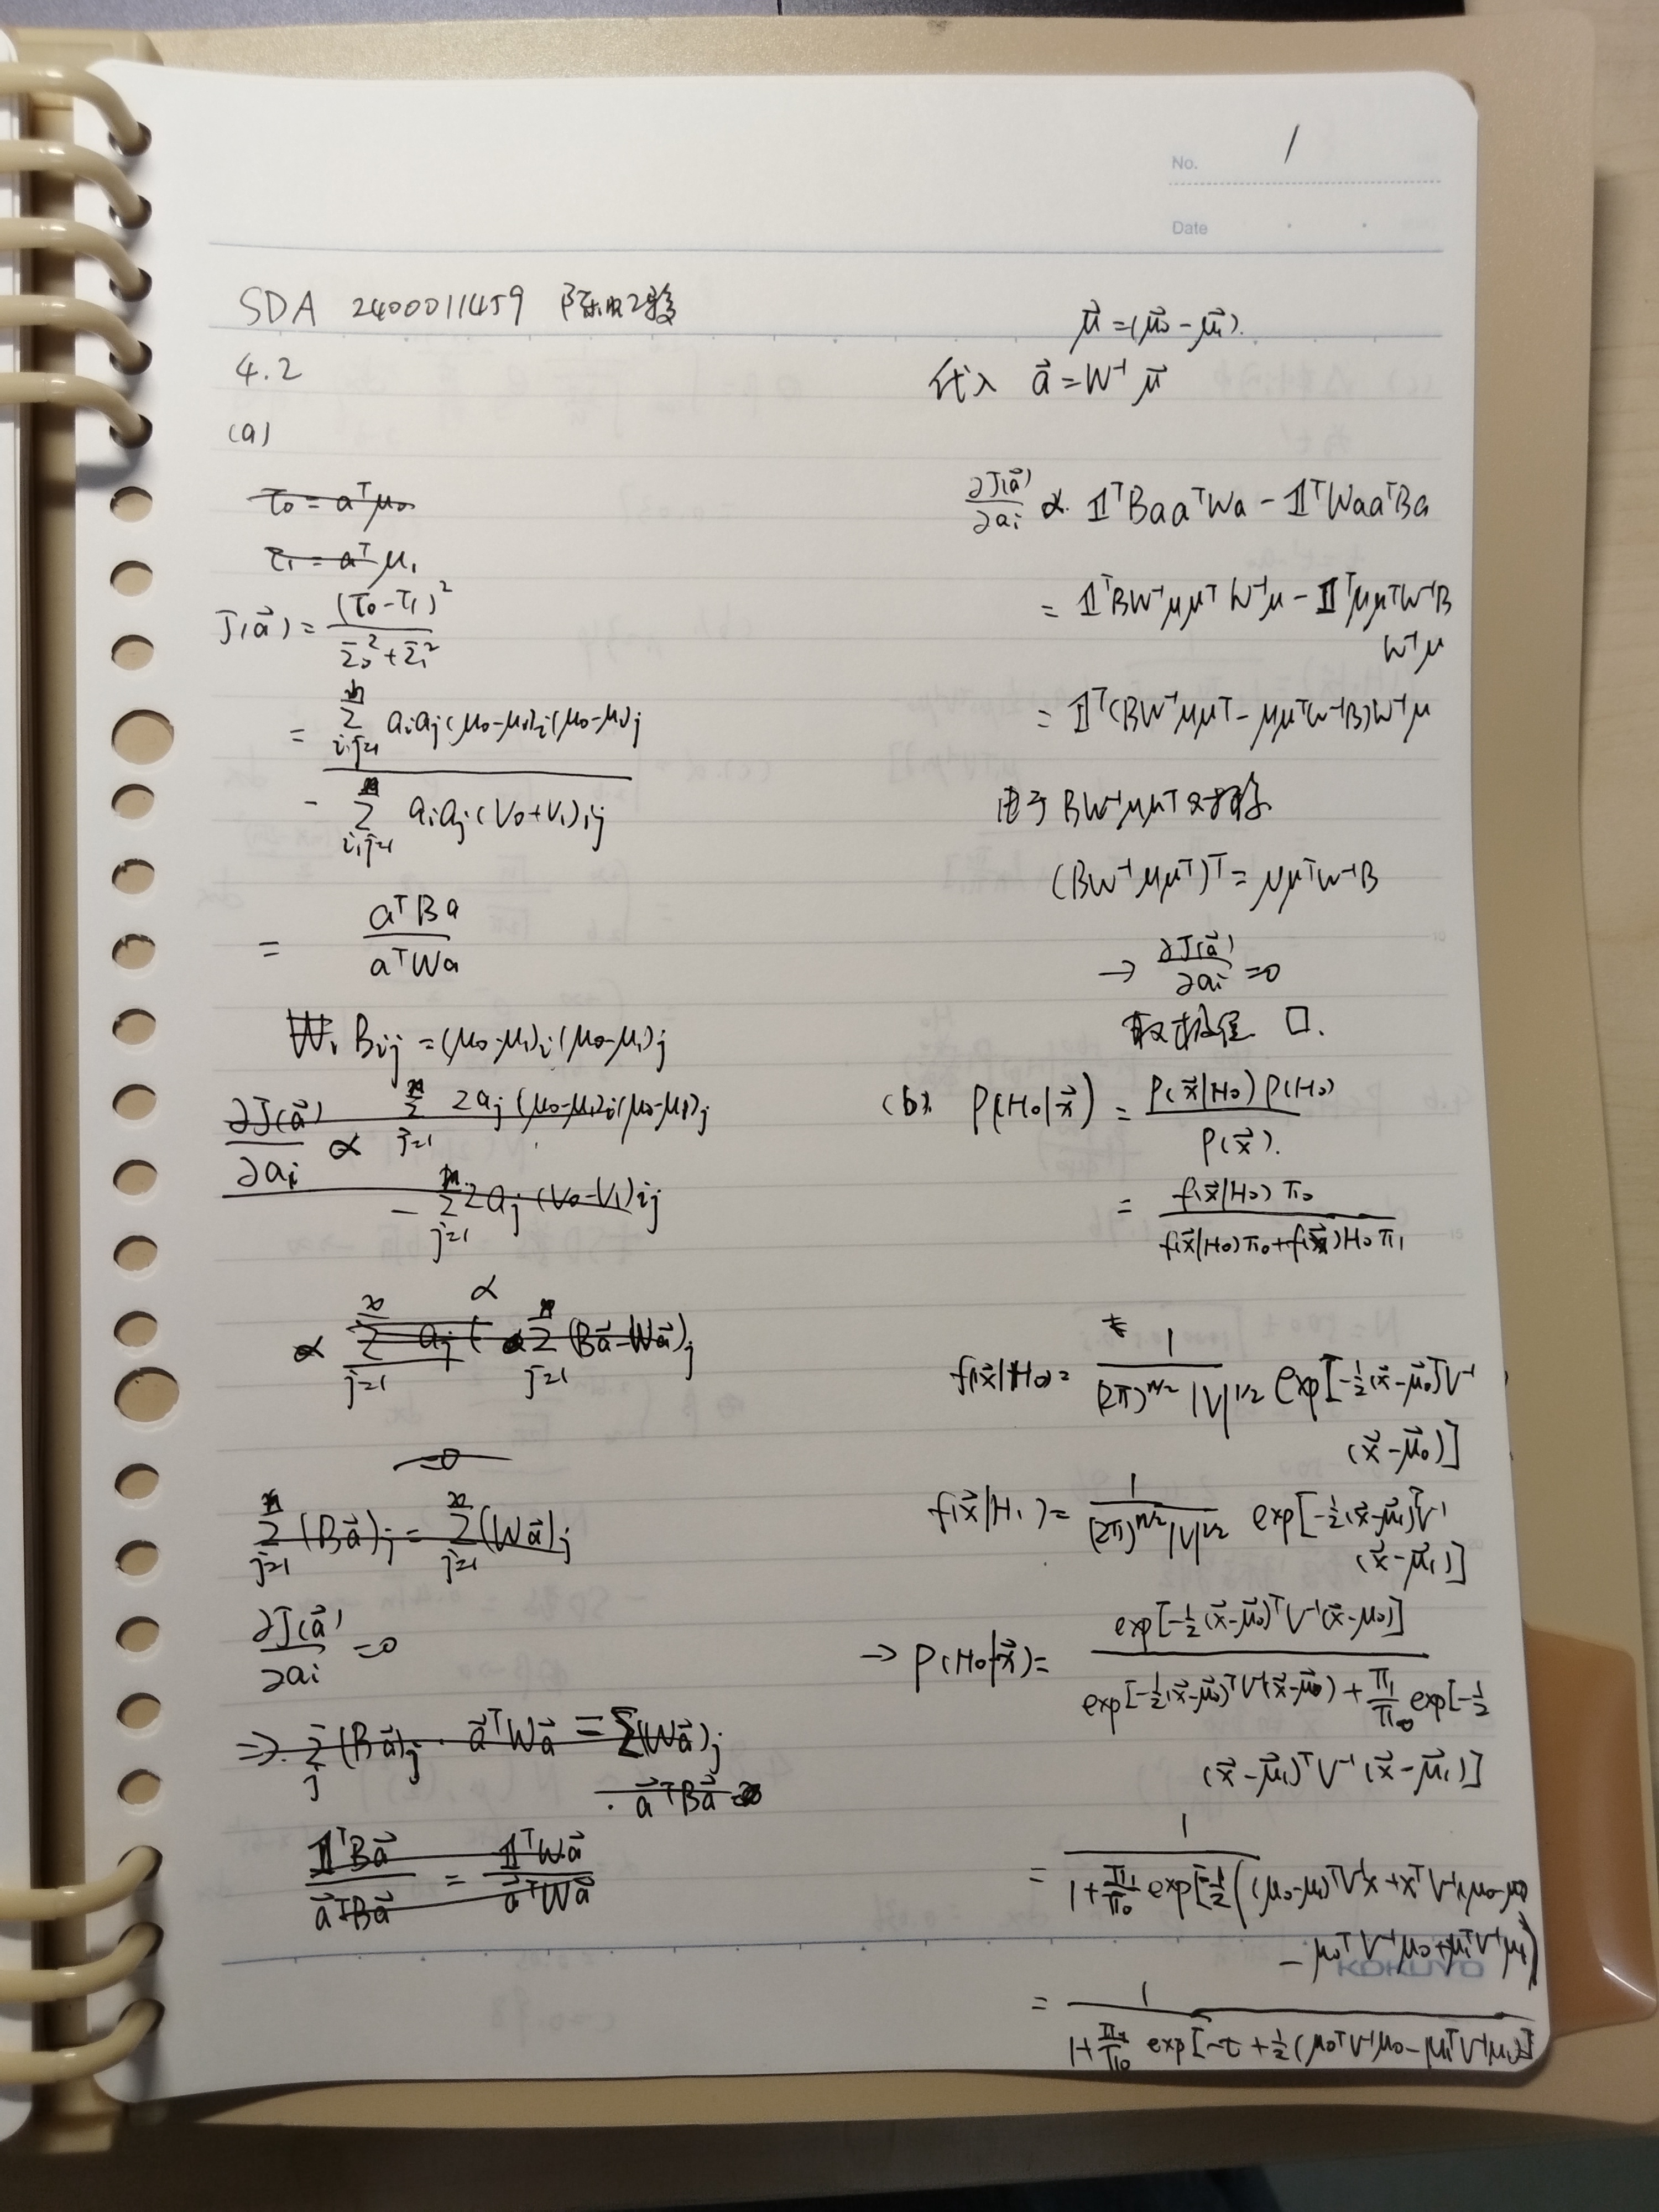 No. 1
Date
SDA 2400011459
4.2
(a)
τ₀ = aᵀμ₀
τ₁ = aᵀμ₁
J(a⃗) = (τ₀-τ₁)² / (Σ₀²+Σ₁²)
= Σ_{i,j=1}^n aᵢaⱼ(μ₀-μ₁)ᵢ(μ₀-μ₁)ⱼ / Σ_{i,j=1}^n aᵢaⱼ(V₀+V₁)ᵢⱼ
= aᵀBa / aᵀWa
Bᵢⱼ = (μ₀-μ₁)ᵢ(μ₀-μ₁)ⱼ
∂J(a⃗)/∂aᵢ ∝ Σ_{j=1}^n 2aⱼ(μ₀-μ₁)ᵢ(μ₀-μ₁)ⱼ
- Σ_{j=1}^n 2aⱼ(V₀-V₁)ᵢⱼ
∝ Σ_{j=1}^n (Ba⃗-Wa⃗)ⱼ
=0
Σ_{j=1}^n (Ba⃗)ⱼ = Σ_{j=1}^n (Wa⃗)ⱼ
∂J(a⃗)/∂aᵢ =0
⇒ Σ_j (Ba⃗)ⱼ · a⃗ᵀWa⃗ = Σ(Wa⃗)ⱼ
· a⃗ᵀBa⃗
𝟙ᵀBa⃗ / a⃗ᵀBa⃗ = 𝟙ᵀWa⃗ / a⃗ᵀWa⃗
μ⃗ = (μ⃗₀-μ⃗₁).
代入 a⃗ = W⁻¹μ⃗
∂J(a⃗)/∂aᵢ ∝ 𝟙ᵀBaaᵀWa - 𝟙ᵀWaaᵀBa
= 𝟙ᵀBW⁻¹μμᵀW⁻¹μ - 𝟙ᵀμμᵀW⁻¹B
W⁻¹μ
= 𝟙ᵀ(BW⁻¹μμᵀ - μμᵀW⁻¹B)W⁻¹μ
由于 BW⁻¹μμᵀ 对称
(BW⁻¹μμᵀ)ᵀ = μμᵀW⁻¹B
→ ∂J(a⃗)/∂aᵢ =0
取极值 □.
(b). P(H₀|x⃗) = P(x⃗|H₀)P(H₀) / P(x⃗).
= f(x⃗|H₀)π₀ / f(x⃗|H₀)π₀+f(x⃗)H₀π₁
f(x⃗|H₀) = 1 / (2π)^{n/2}|V|^{1/2} exp[-½(x⃗-μ⃗₀)ᵀV⁻¹
(x⃗-μ⃗₀)]
f(x⃗|H₁) = 1 / (2π)^{n/2}|V|^{1/2} exp[-½(x⃗-μ⃗₁)ᵀV⁻¹
(x⃗-μ⃗₁)]
→ P(H₀|x⃗) = exp[-½(x⃗-μ⃗₀)ᵀV⁻¹(x⃗-μ₀)] / exp[-½(x⃗-μ⃗₀)ᵀV⁻¹(x⃗-μ⃗₀) + π₁/π₀ exp[-½
(x⃗-μ⃗₁)ᵀV⁻¹(x⃗-μ⃗₁)]
= 1 / 1+π₁/π₀ exp[-½((μ₀-μ₁)ᵀV⁻¹x+xᵀV⁻¹(μ₀-μ₁)
- μ₀ᵀV⁻¹μ₀+μ₁ᵀV⁻¹μ₁)
= 1 / 1+π₁/π₀ exp[-τ+½(μ₀ᵀV⁻¹μ₀-μ₁ᵀV⁻¹μ₁)]